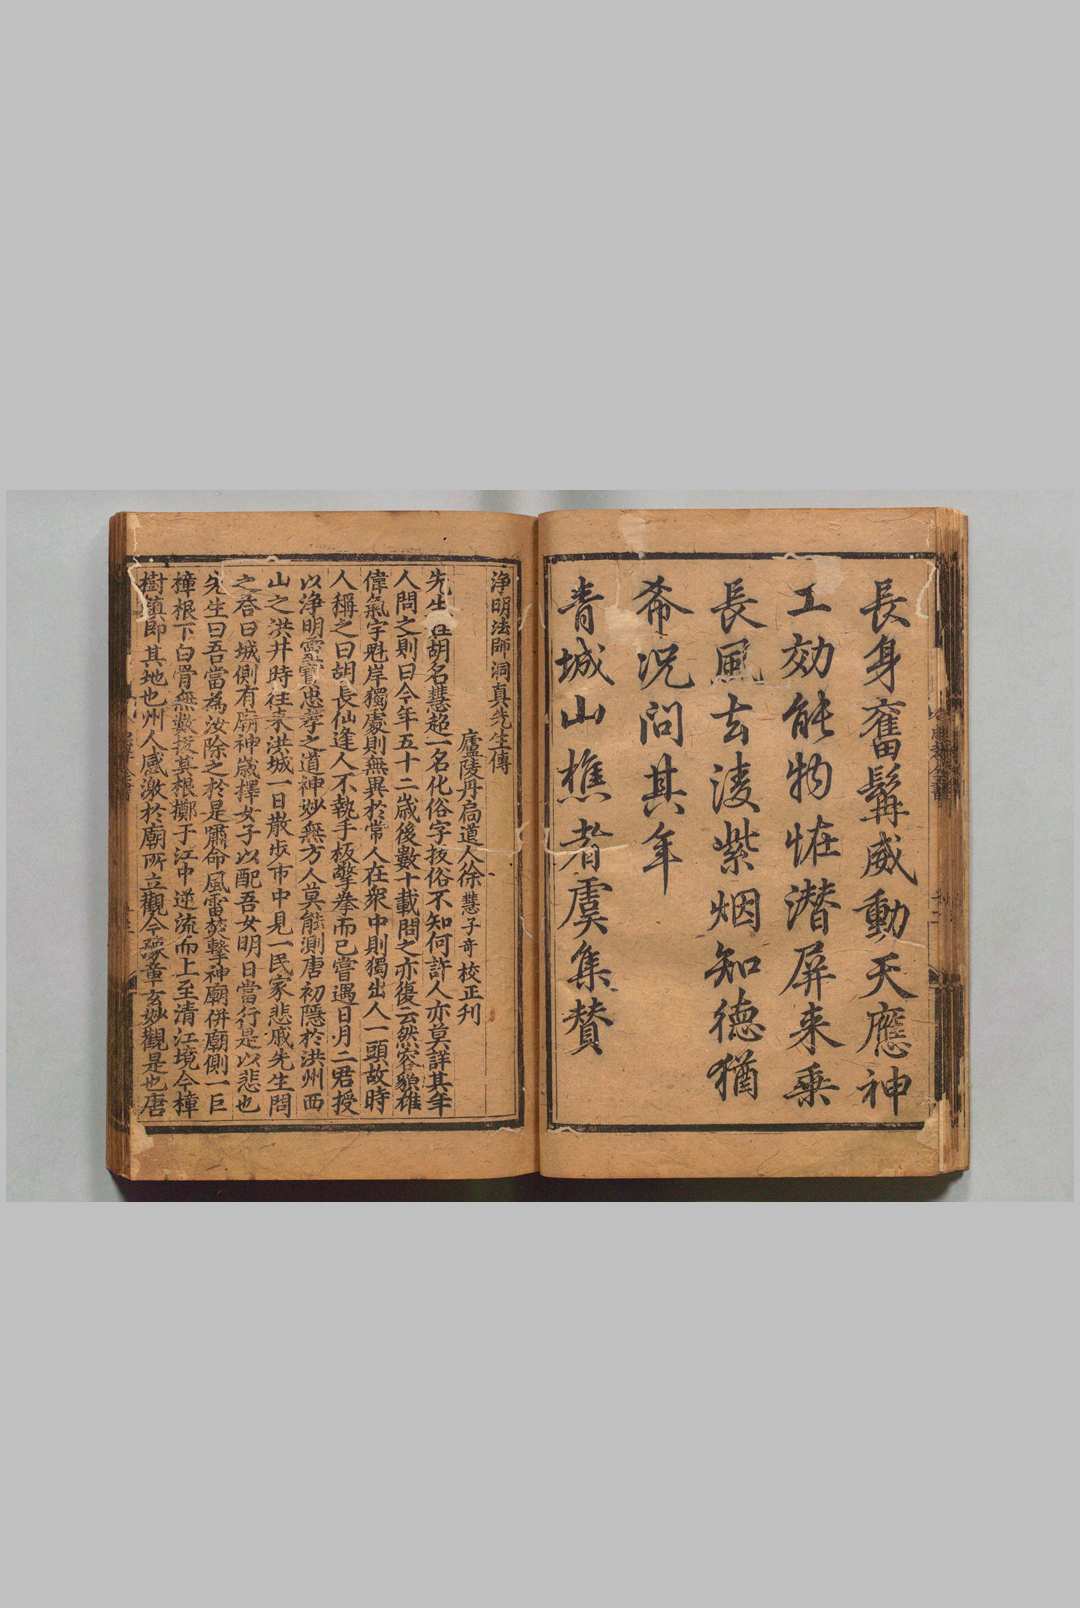 長身奮髯威動天應神
工効能物恠潛屏来乗
長風去淩紫烟知德猶
希況問其年
青城山樵者虞集贊
淨明法師洞真先生傳
廬陵丹扃道人徐慧子奇校正刊
先生姓胡名慧超一名化俗字拔俗不知何許人亦莫詳其年
人問之則曰今年五十二歲後數十載問之亦復云然容貌雄
偉氣宇魁岸獨處則無異於常人在衆中則獨出人一頭故時
人稱之曰胡長仙逢人不執手板擎拳而已嘗遇日月二君授
以淨明靈寳忠孝之道神妙無方人莫能測唐初隱於洪州西
山之洪井時往来洪城一日散歩市中見一民家悲戚先生問
之荅曰城側有廟神歲擇女子以配吾女明日當行是以悲也
先生曰吾當為汝除之於是嘯命風雷掊擊神廟併廟側一巨
樟根下白骨無數拔其根擲于江中逆流而上至清江境今樟
樹鎮即其地也州人感激於廟所立觀今豫章玄妙觀是也唐